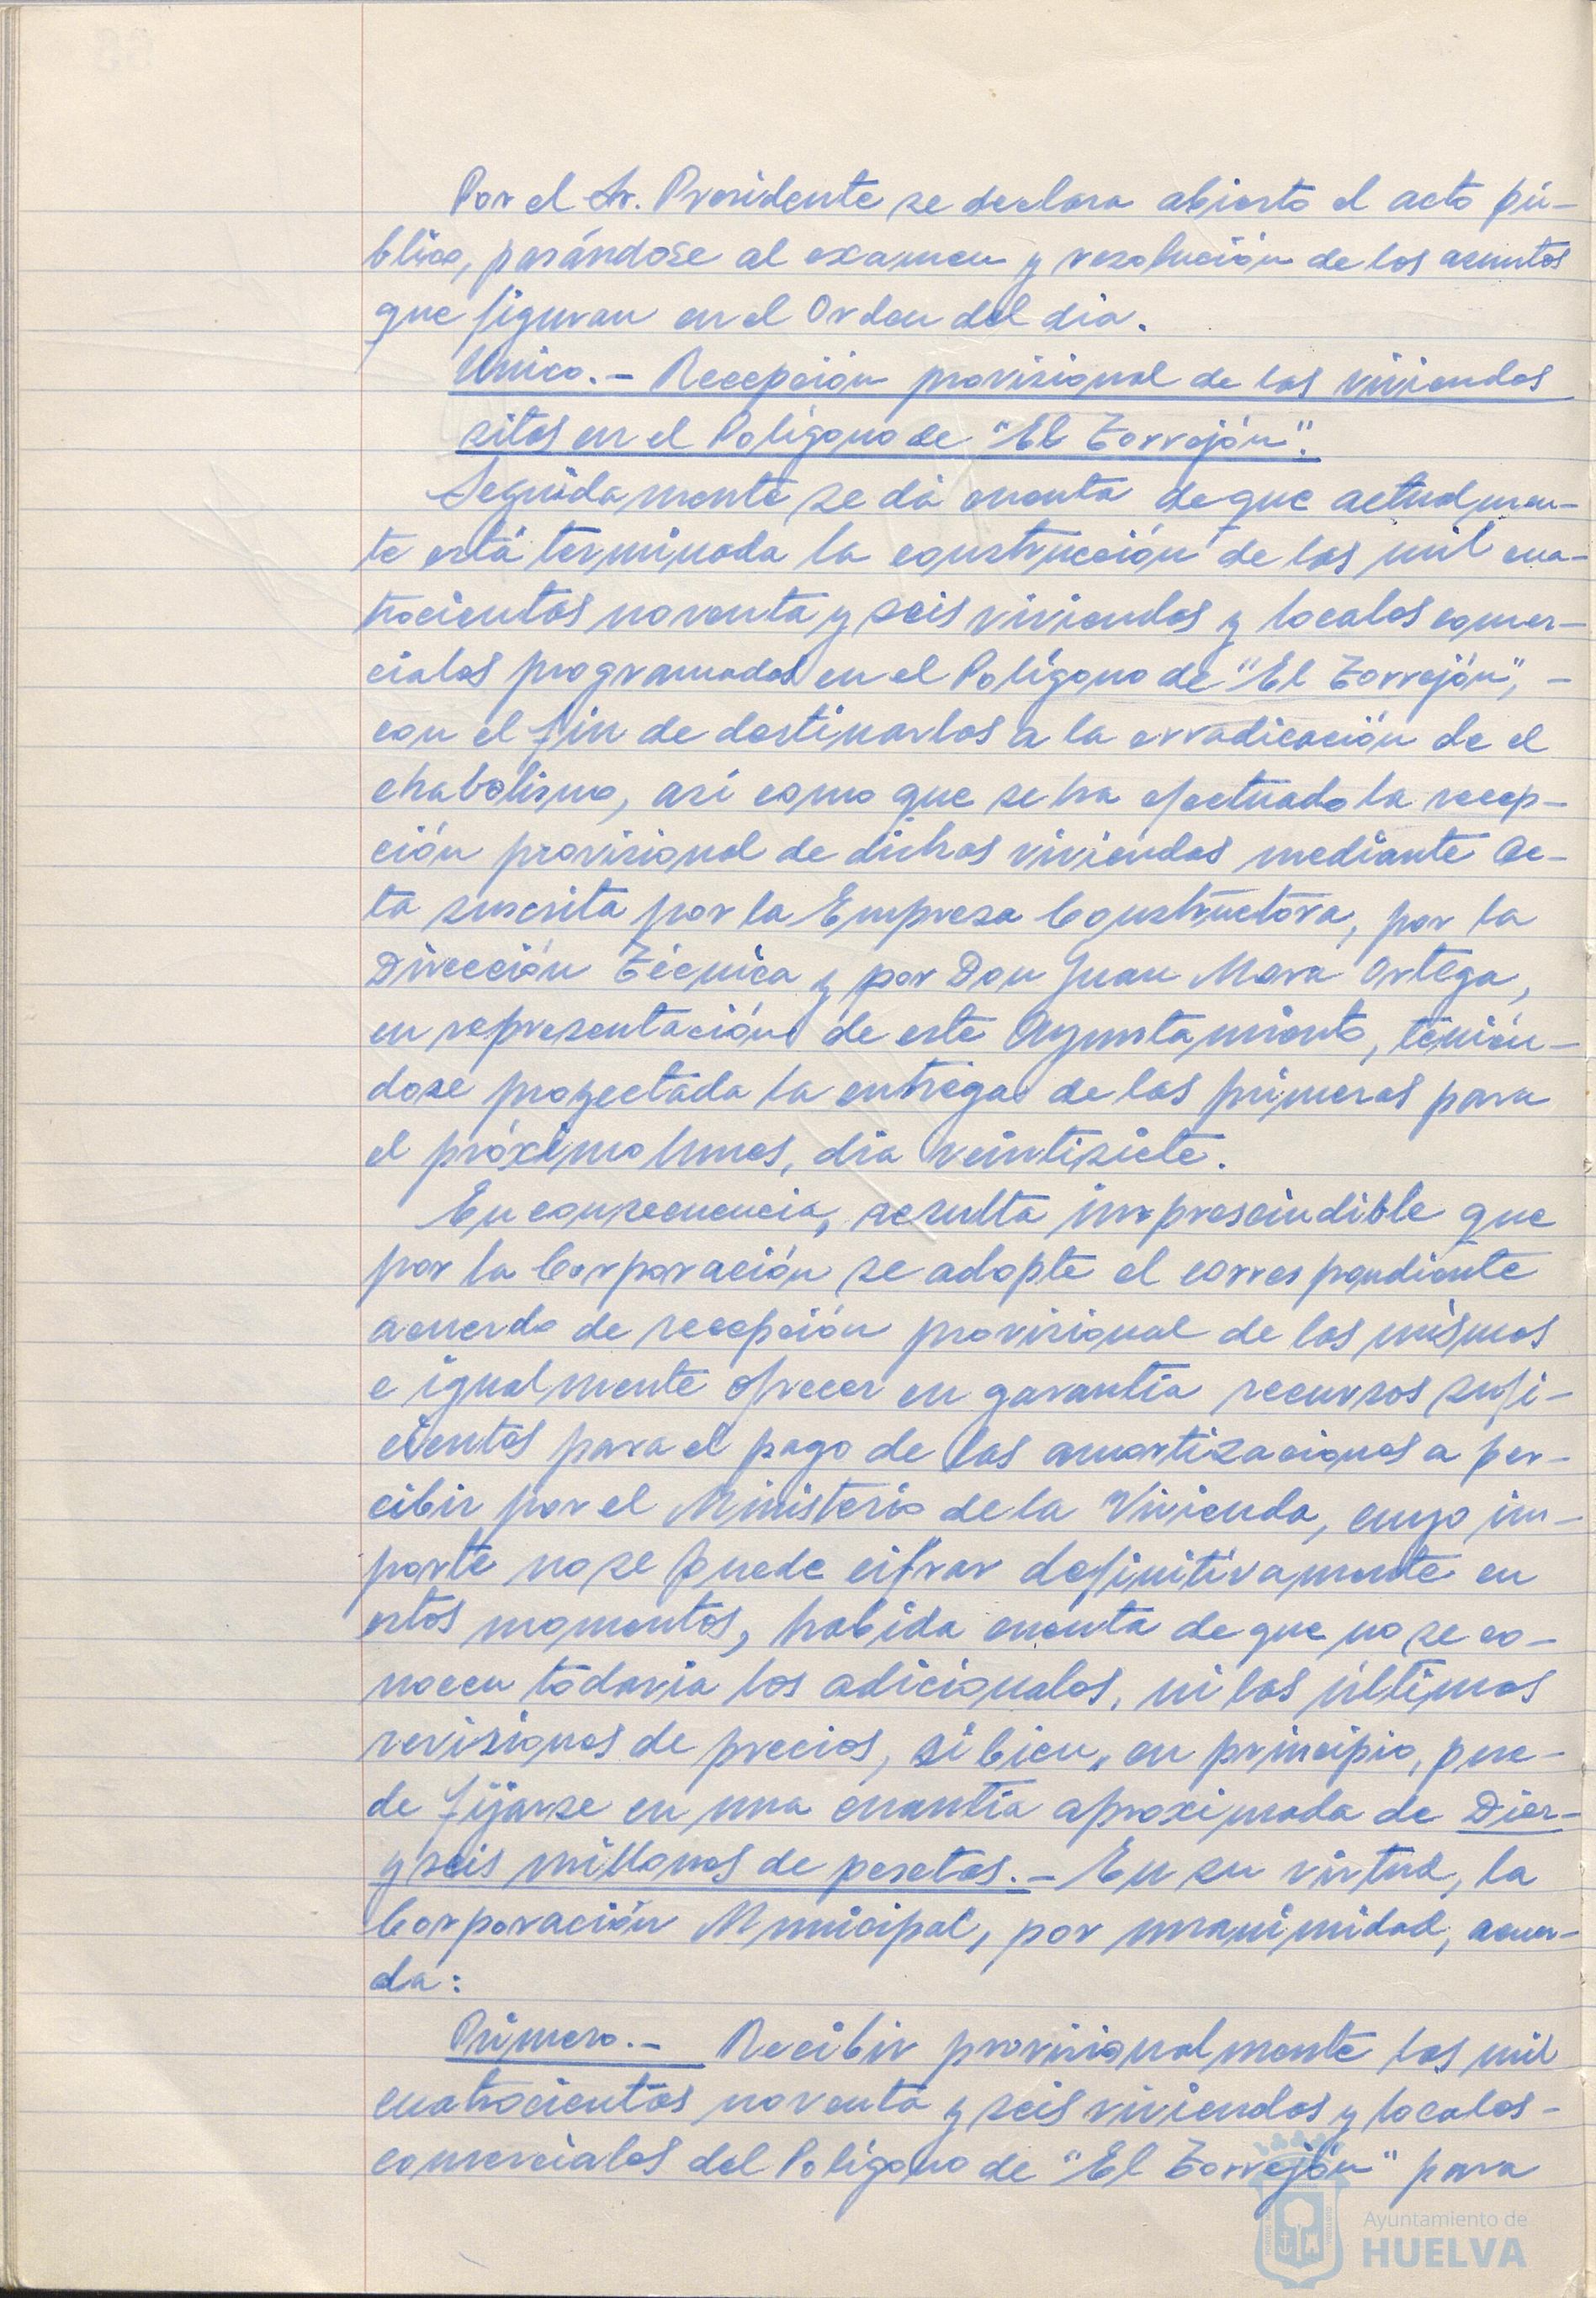 Por el Sr. Presidente se declara abierto el acto pú-
blico, pasándose al examen y resolución de los asuntos
que figuran en el Orden del dia.
Unico.- Recepción provisional de las viviendas
sitas en el Polígono de "El Torrejón".
Seguidamente se dá cuenta de que actualmen-
te está terminada la construcción de las mil cua-
trocientas noventa y seis viviendas y locales comer-
ciales programados en el Polígono de "El Torrejón", -
con el fin de destinarlas a la erradicación de el
chabolismo, así como que se ha efectuado la recep-
ción provisional de dichas viviendas mediante Ac-
ta suscrita por la Empresa Constructora, por la
Dirección Técnica y por Don Juan Mora Ortega,
en representación de este Ayuntamiento, tenién-
dose proyectada la entrega de las primeras para
el próximo lunes, dia veintisiete.
En consecuencia, resulta imprescindible que
por la Corporación se adopte el correspondiente
acuerdo de recepción provisional de las mismas
e igualmente ofrecer en garantía recursos sufi-
cientes para el pago de las amortizaciones a per-
cibir por el Ministerio de la Vivienda, cuyo im-
porte no se puede cifrar definitivamente en
estos momentos, habida cuenta de que no se co-
nocen todavia los adicionales, ni las últimas
revisiones de precios, si bien, en principio, pue-
de fijarse en una cuantía aproximada de Diez-
y seis millones de pesetas.- En su virtud, la
Corporación Municipal, por unanimidad, acuer-
da:
Primero.- Recibir provisionalmente las mil
cuatrocientas noventa y seis viviendas y locales-
comerciales del Polígono de "El Torrejón" para
Ayuntamiento de
HUELVA